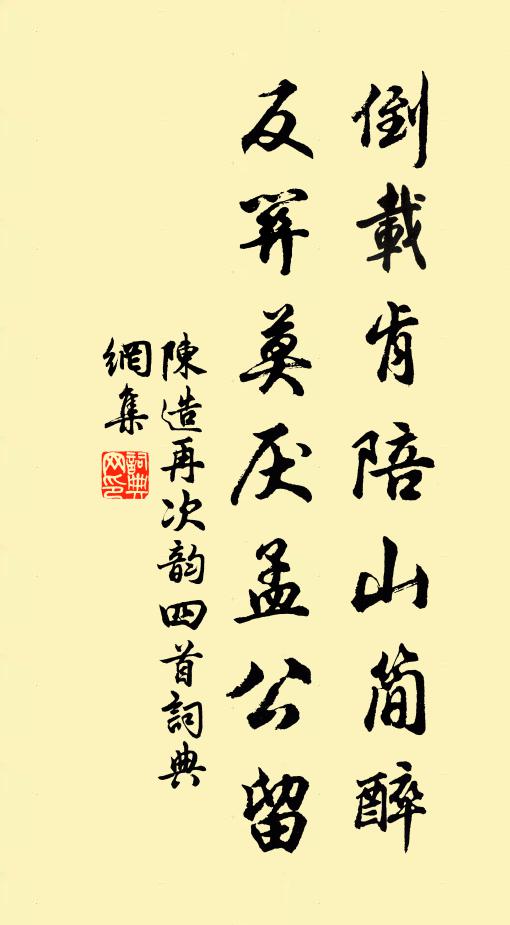 倒載肯陪山簡醉
反關莫厌孟公留
陳造再次韵四首詞典
網集
詞典
网印